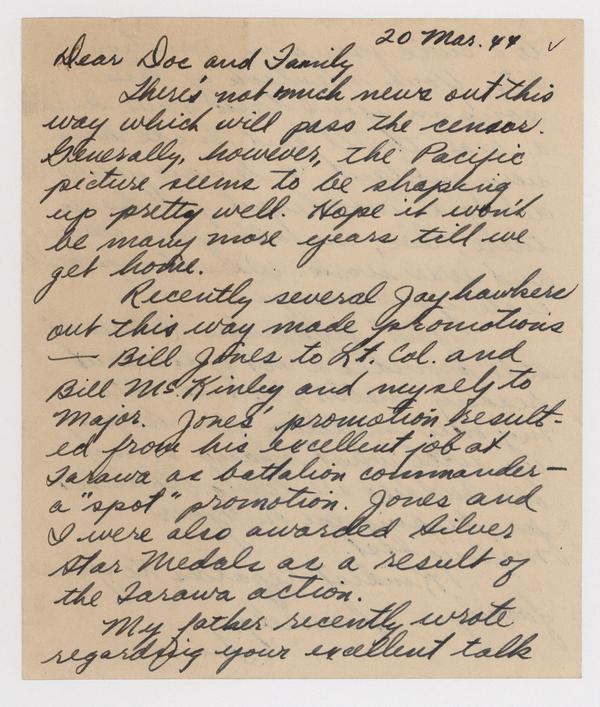 20 Mar. 44 ✓
Dear Doc and Family
There's not much news out this
way which will pass the censor.
Generally, however, the Pacific
picture seems to be shaping
up pretty well. Hope it won't
be many more years till we
get home.
Recently several Jayhawkers
out this way made promotions
— Bill Jones to Lt. Col. and
Bill McKinley and myself to
Major. Jones' promotion result-
ed from his excellent job at
Tarawa as battalion commander—
a "spot" promotion. Jones and
I were also awarded Silver
Star Medals as a result of
the Tarawa action.
My father recently wrote
regarding your excellent talk